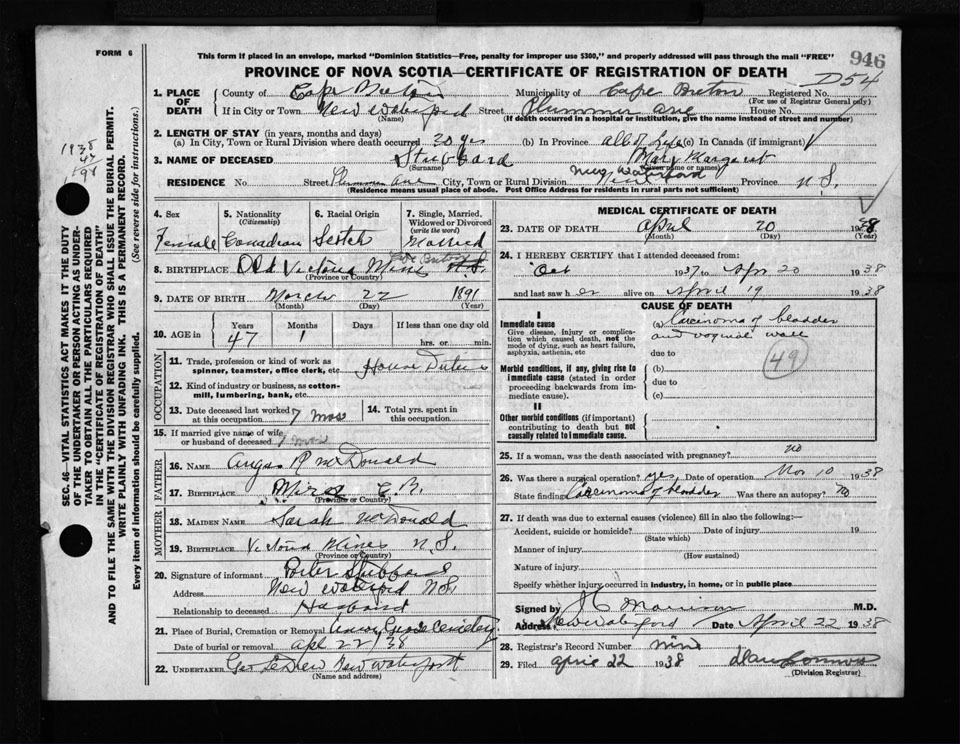 FORM 6
This form if placed in an envelope, marked "Dominion Statistics—Free, penalty for improper use $300," and properly addressed will pass through the mail "FREE"
946
PROVINCE OF NOVA SCOTIA—CERTIFICATE OF REGISTRATION OF DEATH
D54
1. PLACE OF DEATH
County of Cape Breton Municipality of Cape Breton Registered No.
(For use of Registrar General only)
If in City or Town New Waterford Street Plummer ave House No.
(Name) (If death occurred in a hospital or institution, give the name instead of street and number)
2. LENGTH OF STAY (in years, months and days)
(a) In City, Town or Rural Division where death occurred 20 yrs (b) In Province all of life (c) In Canada (if immigrant)
3. NAME OF DECEASED Stubbard Mary Margaret
(Surname) (Given name or names)
RESIDENCE No. Street Plummer ave City, Town or Rural Division New Waterford Province N S.
(Residence means usual place of abode. Post Office Address for residents in rural parts not sufficient)
4. Sex 5. Nationality (Citizenship) 6. Racial Origin 7. Single, Married, Widowed or Divorced (write the word)
Female Canadian Scotch Married
8. BIRTHPLACE Old Victoria Mines N.S.
(Province or Country)
9. DATE OF BIRTH March 22 1891
(Month) (Day) (Year)
10. AGE in Years Months Days If less than one day old
47 1 hrs. or min.
OCCUPATION
11. Trade, profession or kind of work as spinner, teamster, office clerk, etc House Duties
12. Kind of industry or business, as cotton-mill, lumbering, bank, etc.
13. Date deceased last worked at this occupation 7 mos 14. Total yrs. spent in this occupation.
15. If married give name of wife or husband of deceased
FATHER
16. NAME Angus R McDonald
17. BIRTHPLACE Mira C. B.
(Province or Country)
MOTHER
18. MAIDEN NAME Sarah McDonald
19. BIRTHPLACE Victoria Mines N. S.
(Province or Country)
20. Signature of informant Porter Stubbard
Address New Waterford N.S.
Relationship to deceased Husband
21. Place of Burial, Cremation or Removal
Date of burial or removal apl 22/38
22. UNDERTAKER New Waterford
(Name and address)
MEDICAL CERTIFICATE OF DEATH
23. DATE OF DEATH April 20 1938
(Month) (Day) (Year)
24. I HEREBY CERTIFY that I attended deceased from:
Oct 1937 to Apr 20 1938
and last saw her alive on April 19 1938
CAUSE OF DEATH
I
Immediate cause (a) Carcinoma of bladder
Give disease, injury or complication which caused death, not the mode of dying, such as heart failure, asphyxia, asthenia, etc
and vaginal wall
due to
Morbid conditions, if any, giving rise to immediate cause (stated in order proceeding backwards from immediate cause).
(b)
49
due to
(c)
II
Other morbid conditions (if important) contributing to death but not causally related to immediate cause.
25. If a woman, was the death associated with pregnancy? no
26. Was there a surgical operation? yes Date of operation Nov 10 1938
State finding Carcinoma of bladder Was there an autopsy? No
27. If death was due to external causes (violence) fill in also the following:—
Accident, suicide or homicide? Date of injury 19
(State which)
Manner of injury
(How sustained)
Nature of injury
Specify whether injury occurred in industry, in home, or in public place
Signed by M.D.
Address New Waterford Date April 22 1938
28. Registrar's Record Number nine
29. Filed april 22 1938
(Division Registrar)
1938
SEC. 46—VITAL STATISTICS ACT MAKES IT THE DUTY
OF THE UNDERTAKER OR PERSON ACTING AS UNDER-
TAKER TO OBTAIN ALL THE PARTICULARS REQUIRED
IN THE "CERTIFICATE OF REGISTRATION OF DEATH"
AND TO FILE THE SAME WITH THE DIVISION REGISTRAR WHO SHALL ISSUE THE BURIAL PERMIT.
WRITE PLAINLY WITH UNFADING INK. THIS IS A PERMANENT RECORD.
Every item of information should be carefully supplied. (See reverse side for instructions.)